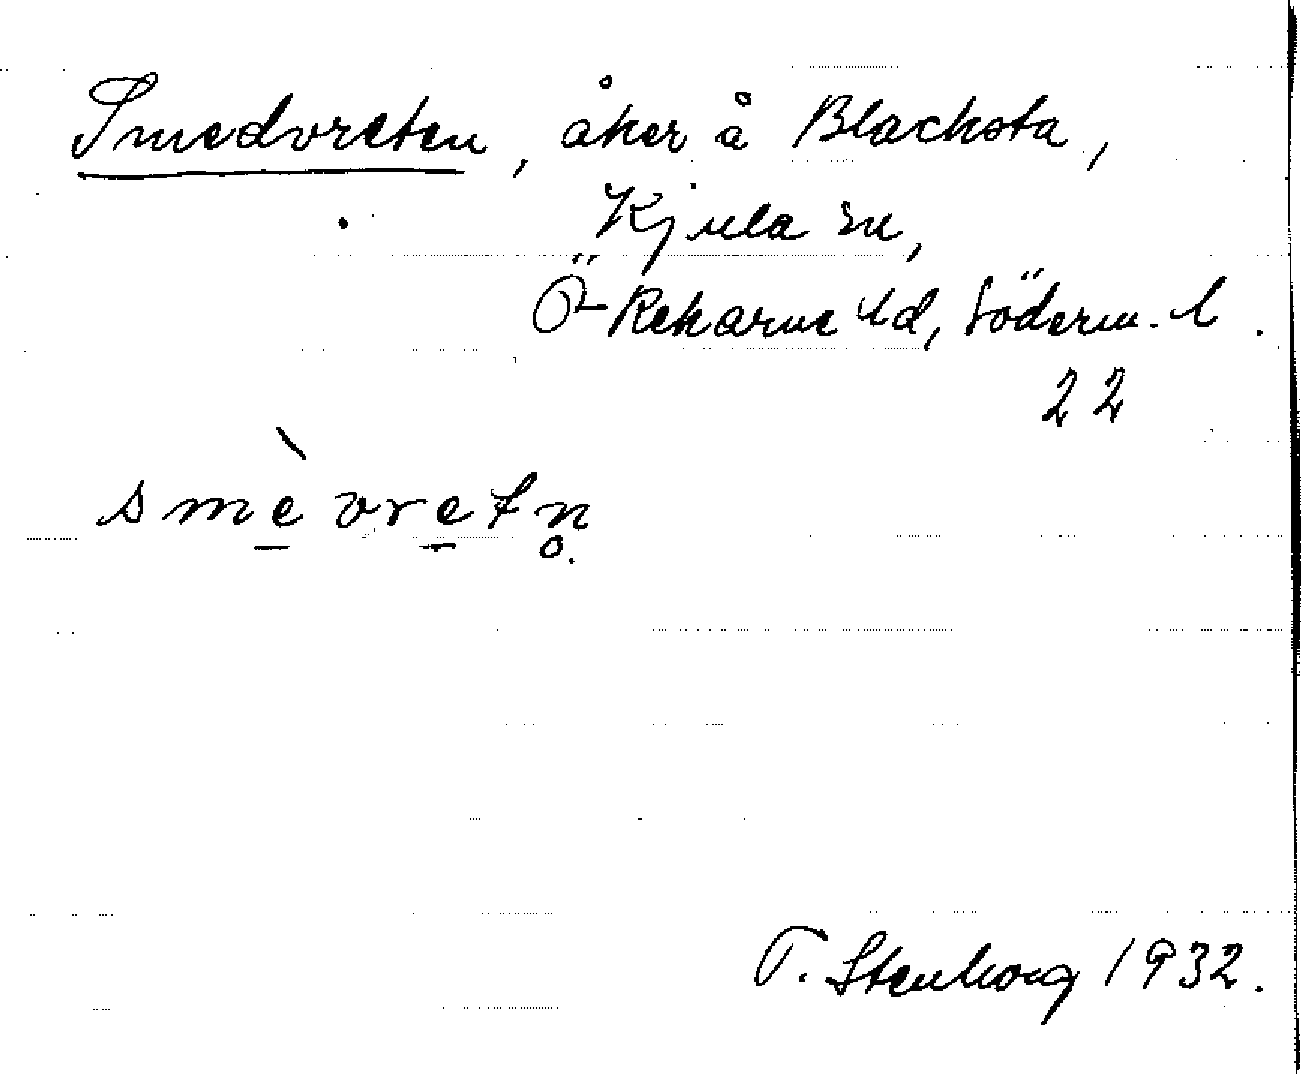 Smedvreten, åker å Blacksta,
Kjula sn,
Ö-Rekarne hd, Söderm. l.
22
smè̱vre̱tn̥.
T. Stenborg 1932.